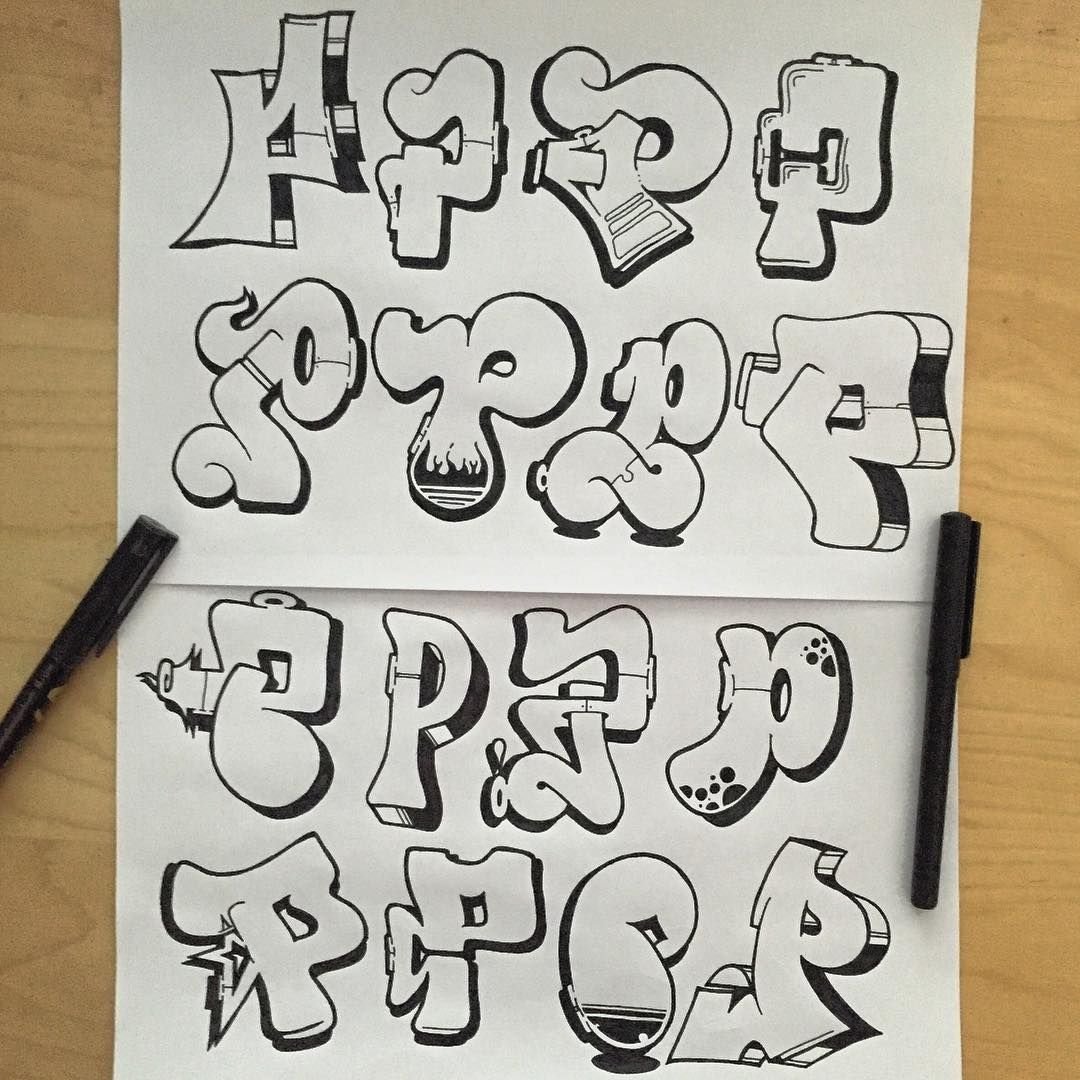 P P P P
P P P P
P P P P
P P P P